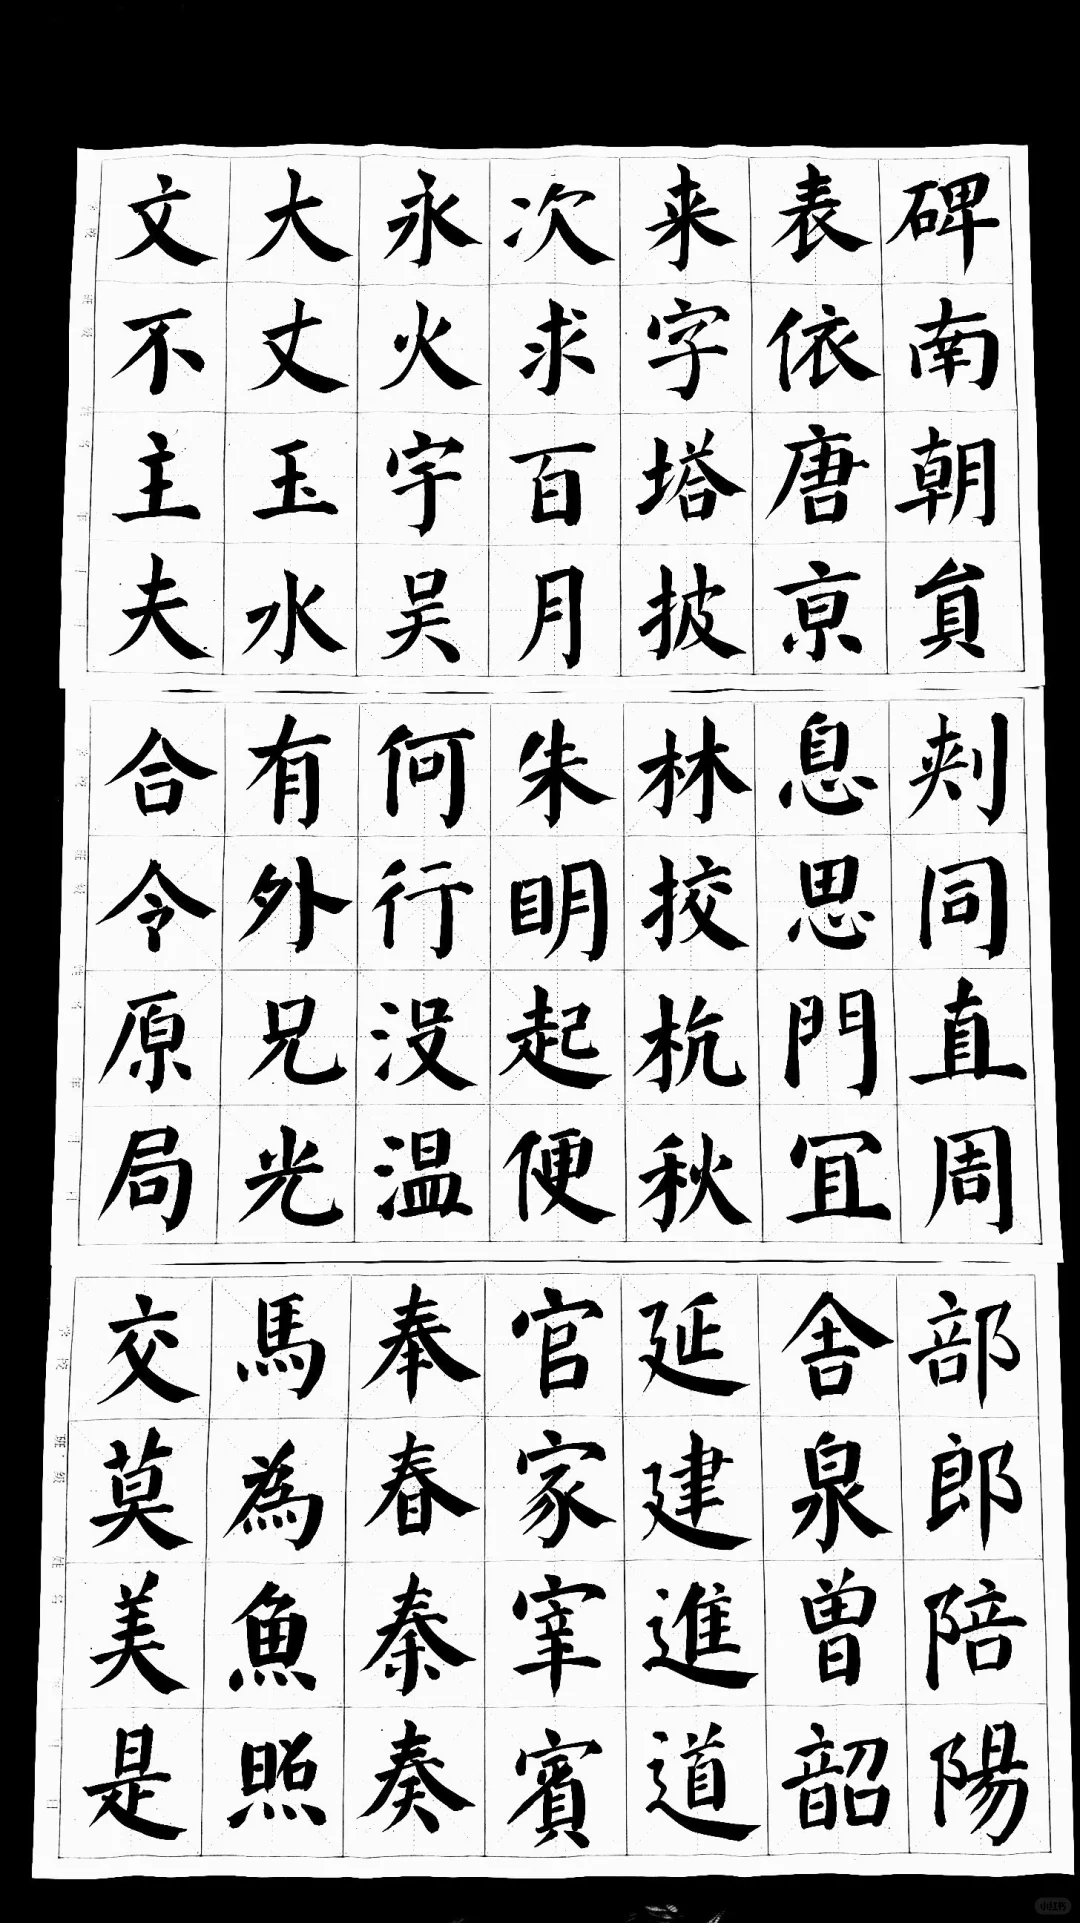 文大永次来表碑
不丈火求字依南
主玉宇百塔唐朝
夫水吴月披亰貟
合有何朱林息刾
令外行眀挍思同
原兄没起杭門直
局光温便秋冝周
交馬奉官延舍部
莫為春家建泉郎
美魚秦宰進曽陪
是照奏賓道韶陽
小红书